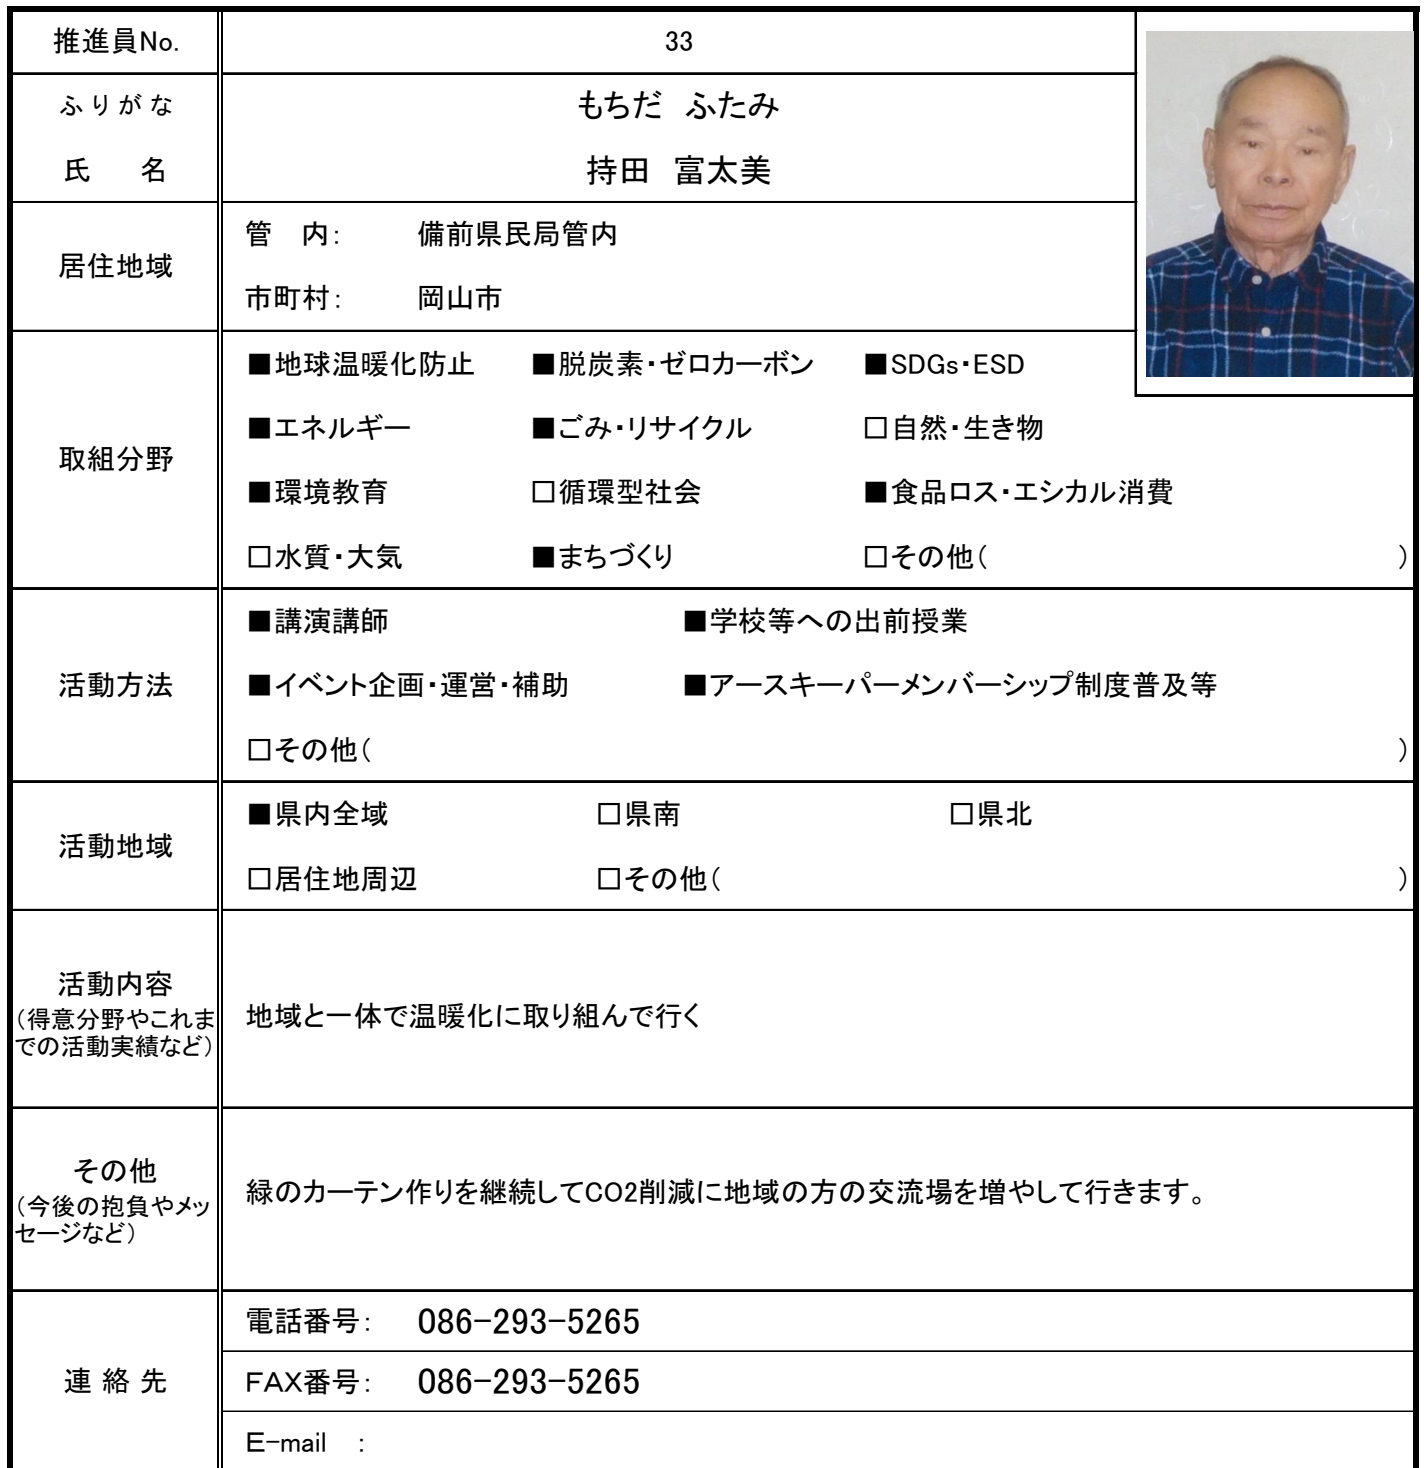 推進員No. 33
ふりがな もちだ ふたみ
氏 名 持田 富太美
居住地域
管 内: 備前県民局管内
市町村: 岡山市
取組分野
■地球温暖化防止 ■脱炭素・ゼロカーボン ■SDGs・ESD
■エネルギー ■ごみ・リサイクル □自然・生き物
■環境教育 □循環型社会 ■食品ロス・エシカル消費
□水質・大気 ■まちづくり □その他( )
活動方法
■講演講師 ■学校等への出前授業
■イベント企画・運営・補助 ■アースキーパーメンバーシップ制度普及等
□その他( )
活動地域
■県内全域 □県南 □県北
□居住地周辺 □その他( )
活動内容
(得意分野やこれま
での活動実績など)
地域と一体で温暖化に取り組んで行く
その他
(今後の抱負やメッ
セージなど)
緑のカーテン作りを継続してCO2削減に地域の方の交流場を増やして行きます。
連絡先
電話番号: 086-293-5265
FAX番号: 086-293-5265
E-mail :